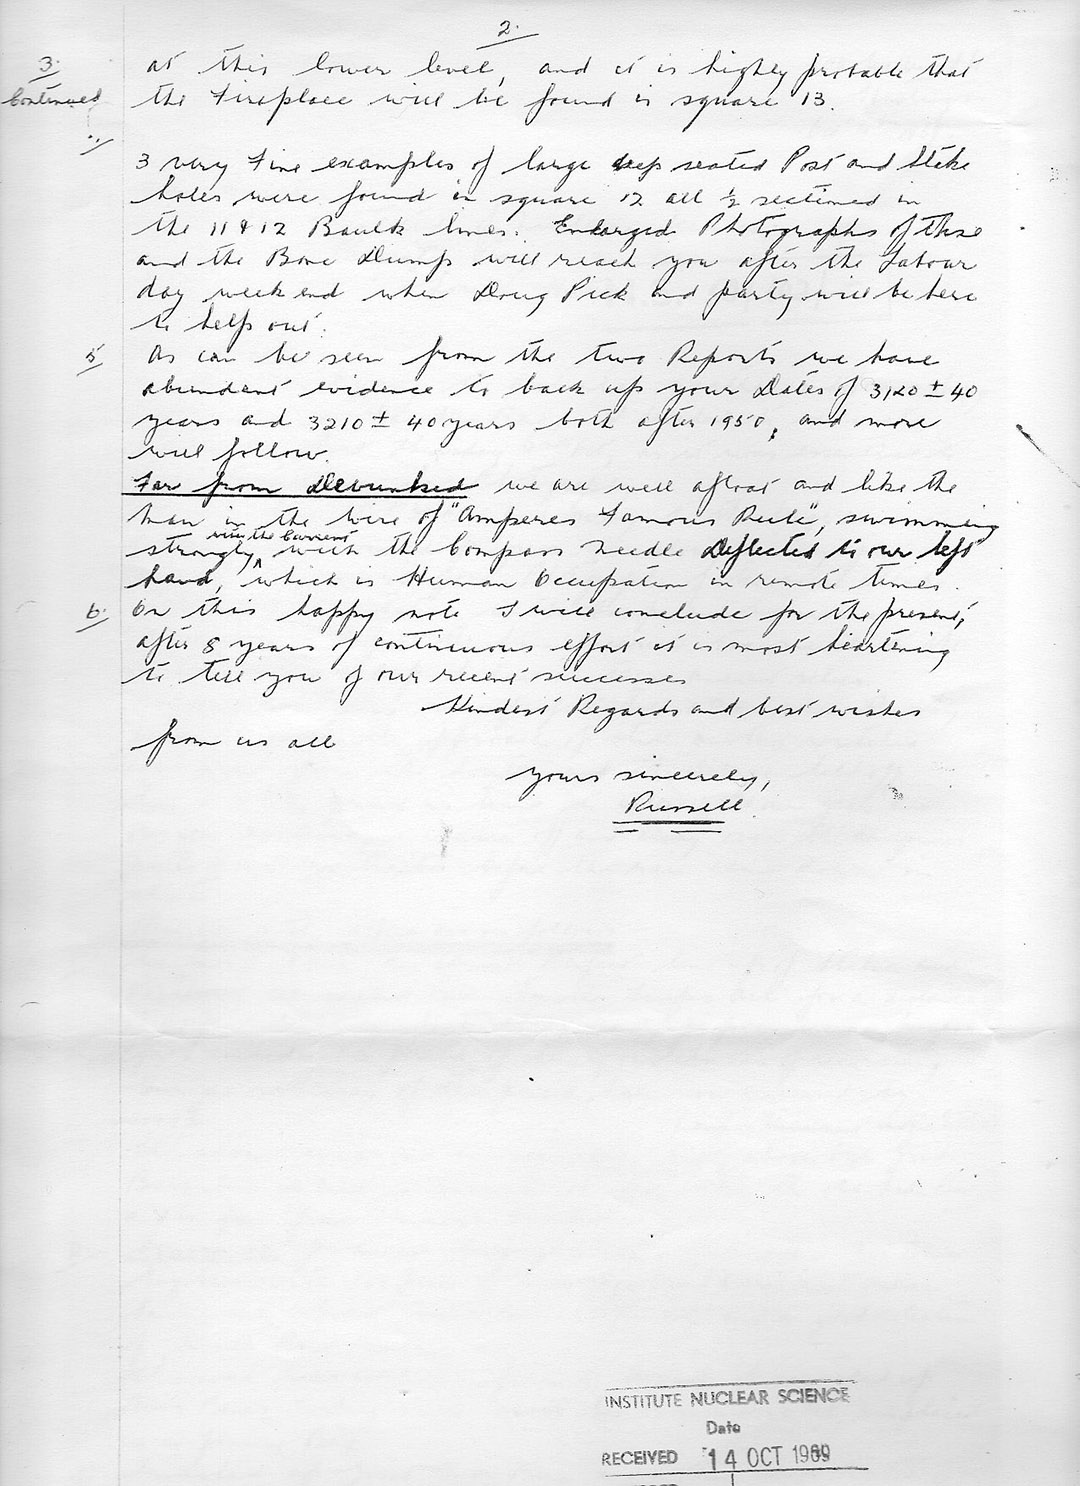 2.
3. at this lower level, and it is highly probable that
Continued the Fireplace will be found in square 13.
3 very Fine examples of large deep seated Post and Stake
holes were found in square 12 all ½ sectioned in
the 11 & 12 Baulk lines. Enlarged Photographs of these
and the Bone Dumps will reach you after the Labour
day week end when Doug Pick and party will be here
to help out.
5 As can be seen from the two Reports we have
abundant evidence to back up your Dates of 3120 ± 40
years and 3210 ± 40 years both after 1950, and more
will follow.
Far from Debunked we are well afloat and like the
man in the wire of "Amperes Famous Rule", swimming
with the Current
strongly, with the Compass Needle Deflected to our left
hand, which is Human Occupation in remote times.
6. On this happy note I will conclude for the present,
after 8 years of continuous effort it is most heartening
to tell you of our recent successes
Kindest Regards and best wishes
from us all
yours sincerely,
Russell.
INSTITUTE NUCLEAR SCIENCE
Date
RECEIVED 14 OCT 1969